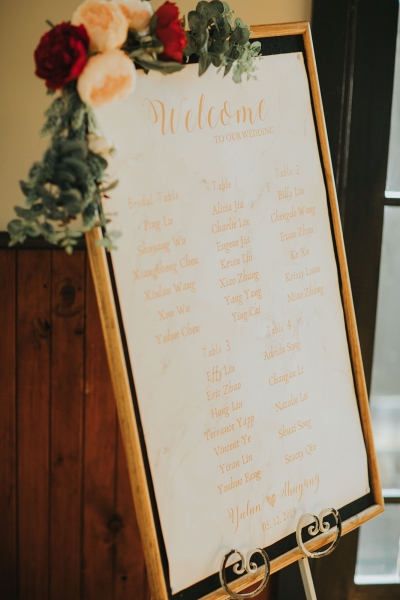 Welcome
TO OUR WEDDING
Bridal Table
Ping Lu
Shuyang Wu
Xiangdong Chen
Xiulan Wang
Xue Wu
Yuhao Chen
Table 1
Alicia Jia
Charlie Lin
Eugene Jia
Kevin Lin
Xiao Zhang
Yang Yang
Ying Cai
Table 2
Billy Lin
Chengde Wang
Evan Zhou
Ke Xu
Krissy Luan
Miao Zhang
Table 3
Effy Lin
Eric Zhao
Hung Lin
Terrance Yapp
Vincent Ye
Yiran Lin
Yuchao Fang
Table 4
Adrina Song
Chunjiao Li
Natalie Lai
Shuai Song
Stacey Qin
Yulun
05.12.20